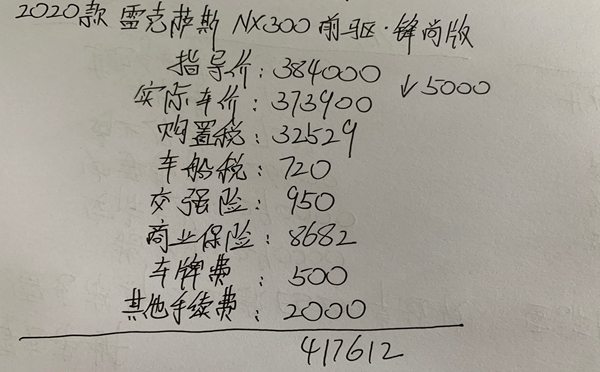 2020款 雷克萨斯 NX300 前驱·锋尚版
指导价：384000
↓5000
实际车价：373900
购置税：32529
车船税：720
交强险：950
商业保险：8682
车牌费：500
其他手续费：2000
417612